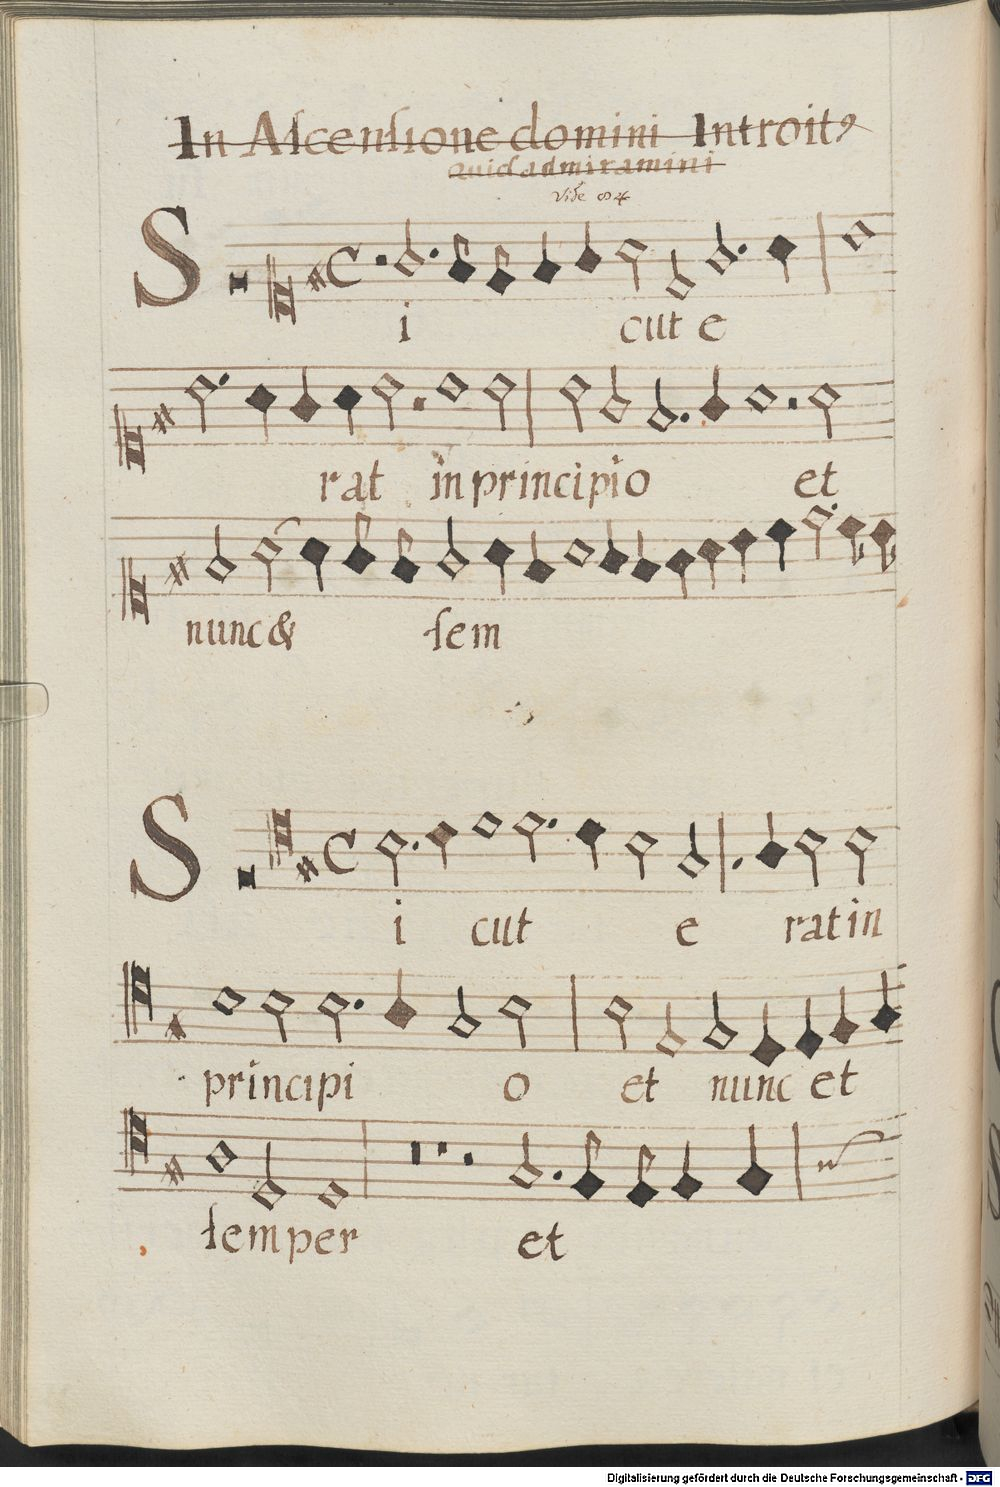 In Aſcenſione domini Introitꝰ
quid admiramini
Vide
S
i cut e
rat in principio et
nunc & ſem
S
i cut e rat in
principi o et nunc et
ſemper et
Digitalisierung gefördert durch die Deutsche Forschungsgemeinschaft - DFG